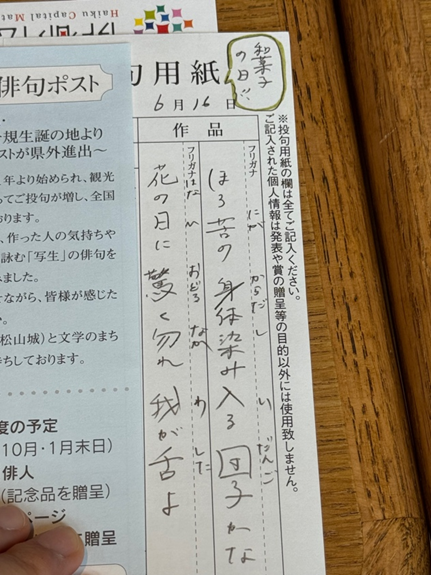 Haiku Capital Mat
俳句ポスト
規生誕の地より
ストが県外進出～
年より始められ、観光
てご投句が増し、全国
おります。
、作った人の気持ちや
詠む「写生」の俳句を
みました。
せながら、皆様が感じた
松山城）と文学のまち
待ちしております。
度の予定
10月・1月末日）
俳人
（記念品を贈呈）
ページ
を贈呈
句用紙
和菓子
の日!!
6月16日
作品
※投句用紙の欄は全てご記入ください。
ご記入された個人情報は発表や賞の贈呈等の目的以外には使用致しません。
フリガナ にが からだ し い だんご
ほろ苦の身体染み入る団子かな
フリガナ はな ひ おどろ なか わ した
花の日に驚く勿れ我が舌よ